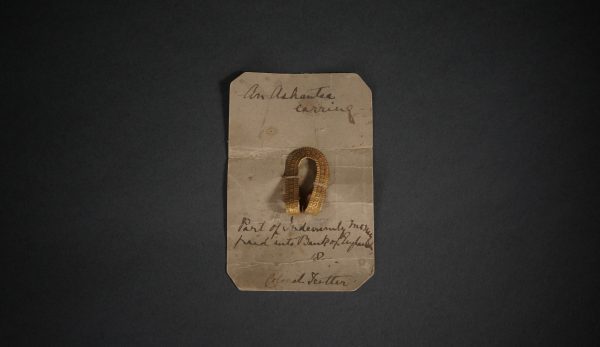 An Ashantee
earring
Part of indemnity money
paid into Bank of England
Colonel Trotter